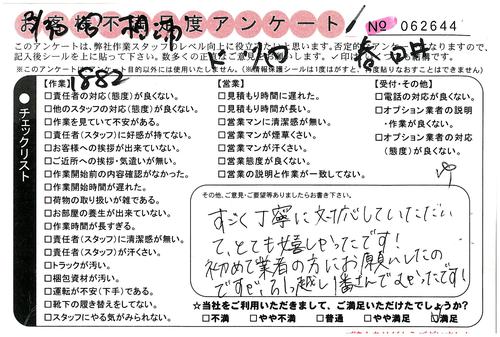 お客様不満足度アンケート
No 062644
このアンケートは、弊社作業スタッフのレベル向上に役立
記入後シールを上に貼って下さい。
※このアンケートは
1882
チェックリスト
【作業】
□責任者の対応(態度)が良くない。
□他のスタッフの対応(態度)が良くない。
□作業を見ていて不安がある。
□責任者(スタッフ)に好感が持てない。
□お客様への挨拶が出来ていない。
□ご近所への挨拶・気遣いが無い。
□作業開始前の内容確認がなかった。
□作業開始時間が遅れた。
□荷物の取り扱いが雑である。
□お部屋の養生が出来ていない。
□作業時間が長すぎる。
□責任者(スタッフ)に清潔感が無い。
□責任者(スタッフ)が汗くさい。
□トラックが汚い。
□梱包資材が汚い。
□運転が安全(下手)である。
□靴下の履き替えをしてない。
□スタッフにやる気がみられない。
【営業】
□見積もり時間に遅れた。
□見積もり時間が長い。
□営業マンに清潔感が無い。
□営業マンが煙草くさい。
□営業マンが汗くさい。
□営業態度が良くない。
□営業の説明と作業が一致してない。
【受付・その他】
□電話の対応が良くない。
□オプション業者の説明
・作業が良くない。
□オプション業者の対応
(態度)が良くない。
その他、ご意見・ご要望等ありましたらお書き下さい。
すごく丁寧に対応していただい
て、とても嬉しかったです!
初めて業者の方にお願いしたの
ですが、引っ越し1番さんでよかったです!
☆当社をご利用いただきまして、ご満足いただけたでしょうか?
□不満 □やや不満 □普通 □やや満足 □満足